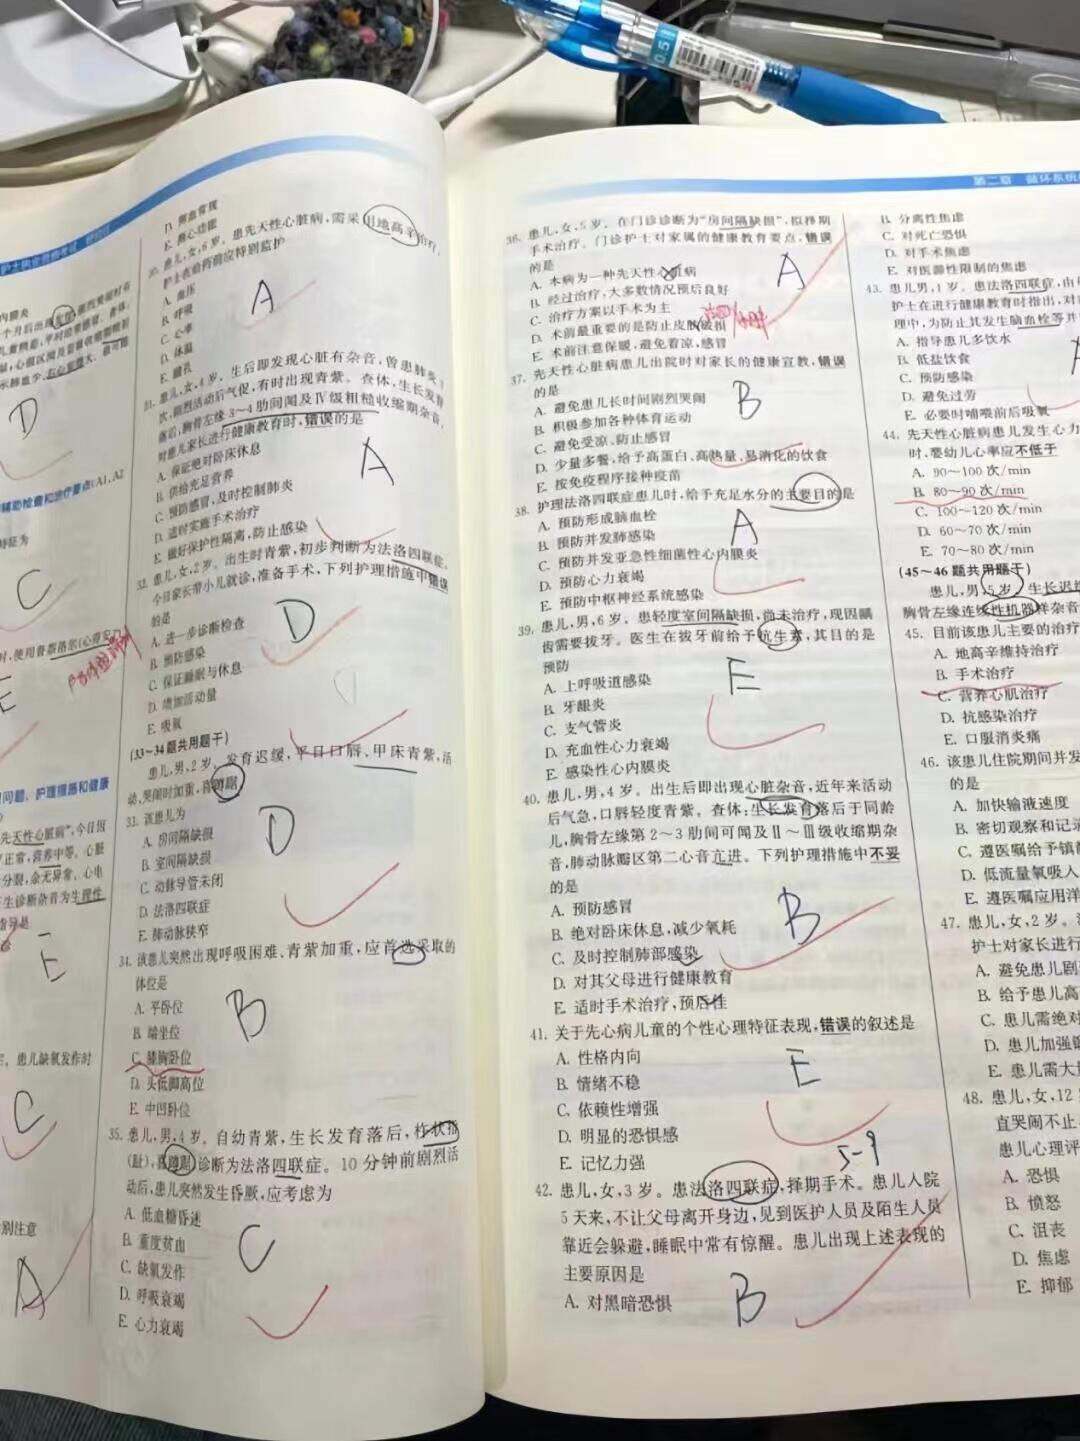 护士执业资格考试
D
C
E
E
C
A
D. 测血常规
E. 测心功能
30. 患儿,女,6岁。患先天性心脏病,需采用地高辛治疗,
护士在给药前应特别监护
A. 血压
B. 呼吸
C. 心率
D. 体温
E. 瞳孔
A
31. 患儿,女,4岁。生后即发现心脏有杂音,曾患肺炎
次,剧烈活动后气促,有时出现青紫。查体,生长发育
落后,胸骨左缘3~4肋间闻及Ⅳ级粗糙收缩期杂音,
对患儿家长进行健康教育时,错误的是
A. 保证绝对卧床休息
B. 供给充足营养
C. 预防感冒,及时控制肺炎
D. 适时实施手术治疗
E. 做好保护性隔离,防止感染
A
32. 患儿,女,2岁。出生时青紫,初步判断为法洛四联症,
今日家长带小儿就诊,准备手术,下列护理措施中错误
的是
A. 进一步诊断检查
B. 预防感染
C. 保证睡眠与休息
D. 增加活动量
E. 吸氧
D
(33~34题共用题干)
患儿,男,2岁。发育迟缓,平日口唇、甲床青紫,活
动、哭闹时加重,喜蹲踞
33. 该患儿为
A. 房间隔缺损
B. 室间隔缺损
C. 动脉导管未闭
D. 法洛四联症
E. 肺动脉狭窄
D
34. 该患儿突然出现呼吸困难、青紫加重,应首选采取的
体位是
A. 平卧位
B. 端坐位
C. 膝胸卧位
D. 头低脚高位
E. 中凹卧位
B
35. 患儿,男,4岁。自幼青紫,生长发育落后,杵状指
(趾),喜蹲踞,诊断为法洛四联症。10分钟前剧烈活
动后,患儿突然发生昏厥,应考虑为
A. 低血糖昏迷
B. 重度贫血
C. 缺氧发作
D. 呼吸衰竭
E. 心力衰竭
C
36. 患儿,女,5岁。在门诊诊断为“房间隔缺损”,拟择期
手术治疗。门诊护士对家属的健康教育要点,错误
的是
A. 本病为一种先天性心脏病
B. 经过治疗,大多数情况预后良好
C. 治疗方案以手术为主
D. 术前最重要的是防止皮肤破损
E. 术前注意保暖,避免着凉、感冒
A
37. 先天性心脏病患儿出院时对家长的健康宣教,错误
的是
A. 避免患儿长时间剧烈哭闹
B. 积极参加各种体育运动
C. 避免受凉、防止感冒
D. 少量多餐,给予高蛋白、高热量、易消化的饮食
E. 按免疫程序接种疫苗
B
38. 护理法洛四联症患儿时,给予充足水分的主要目的是
A. 预防形成脑血栓
B. 预防并发肺感染
C. 预防并发亚急性细菌性心内膜炎
D. 预防心力衰竭
E. 预防中枢神经系统感染
A
39. 患儿,男,6岁。患轻度室间隔缺损,尚未治疗,现因龋
齿需要拔牙。医生在拔牙前给予抗生素,其目的是
预防
A. 上呼吸道感染
B. 牙龈炎
C. 支气管炎
D. 充血性心力衰竭
E. 感染性心内膜炎
E
40. 患儿,男,4岁。出生后即出现心脏杂音,近年来活动
后气急,口唇轻度青紫。查体:生长发育落后于同龄
儿,胸骨左缘第2~3肋间可闻及Ⅱ~Ⅲ级收缩期杂
音,肺动脉瓣区第二心音亢进。下列护理措施中不妥
的是
A. 预防感冒
B. 绝对卧床休息,减少氧耗
C. 及时控制肺部感染
D. 对其父母进行健康教育
E. 适时手术治疗,预后佳
B
41. 关于先心病儿童的个性心理特征表现,错误的叙述是
A. 性格内向
B. 情绪不稳
C. 依赖性增强
D. 明显的恐惧感
E. 记忆力强
E
5-9
42. 患儿,女,3岁。患法洛四联症,择期手术。患儿入院
5天来,不让父母离开身边,见到医护人员及陌生人员
靠近会躲避,睡眠中常有惊醒。患儿出现上述表现的
主要原因是
A. 对黑暗恐惧
B
第二章 循环系统
B. 分离性焦虑
C. 对死亡恐惧
D. 对手术焦虑
E. 对医源性限制的焦虑
43. 患儿,男,1岁。患法洛四联症,由
护士在进行健康教育时指出,对
理中,为防止其发生脑血栓等并
A. 指导患儿多饮水
B. 低盐饮食
C. 预防感染
D. 避免过劳
E. 必要时哺喂前后吸氧
44. 先天性心脏病患儿发生心力
时,婴幼儿心率应不低于
A. 90~100次/min
B. 80~90次/min
C. 100~120次/min
D. 60~70次/min
E. 70~80次/min
(45~46题共用题干)
患儿,男,5岁。生长迟
胸骨左缘连续性机器样杂音
45. 目前该患儿主要的治疗
A. 地高辛维持治疗
B. 手术治疗
C. 营养心肌治疗
D. 抗感染治疗
E. 口服消炎痛
46. 该患儿住院期间并发
的是
A. 加快输液速度
B. 密切观察和记
C. 遵医嘱给予镇
D. 低流量氧吸入
E. 遵医嘱应用洋
47. 患儿,女,2岁。
护士对家长进行
A. 避免患儿剧
B. 给予患儿高
C. 患儿需绝对
D. 患儿加强
E. 患儿需大
48. 患儿,女,12
直哭闹不止
患儿心理评
A. 恐惧
B. 愤怒
C. 沮丧
D. 焦虑
E. 抑郁